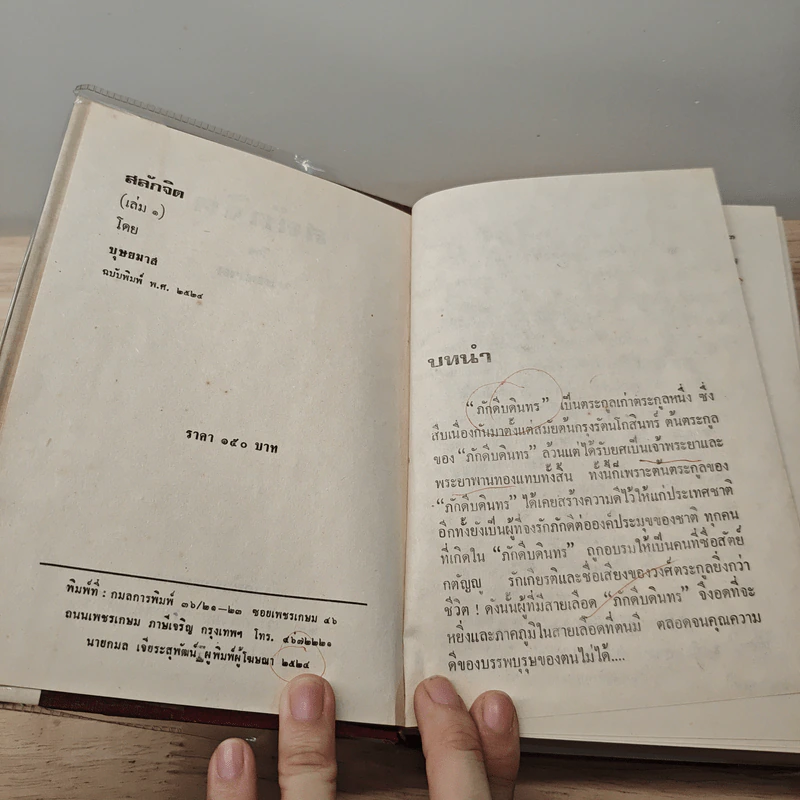 สลักจิต
(เล่ม ๑)
โดย
บุษยมาส
ฉบับพิมพ์ พ.ศ. ๒๕๒๔
ราคา ๑๕๐ บาท
พิมพ์ที่ : กมลการพิมพ์ ๓๖/๒๑—๒๓ ซอยเพชรเกษม ๔๖
ถนนเพชรเกษม ภาษีเจริญ กรุงเทพฯ โทร. ๔๖๗๒๒๒๑
นายกมล เจียระสุพัฒน์ ผู้พิมพ์ผู้โฆษณา ๒๕๒๔
บทนำ
“ภักดีบดินทร” เป็นตระกูลเก่าตระกูลหนึ่ง ซึ่ง
สืบเนื่องกันมาตั้งแต่สมัยต้นกรุงรัตนโกสินทร์ ต้นตระกูล
ของ “ภักดีบดินทร” ล้วนแต่ได้รับยศเป็นเจ้าพระยาและ
พระยาพานทองแทบทั้งสิ้น ทั้งนี้ก็เพราะต้นตระกูลของ
“ภักดีบดินทร” ได้เคยสร้างความดีไว้ให้แก่ประเทศชาติ
อีกทั้งยังเป็นผู้ที่จงรักภักดีต่อองค์ประมุขของชาติ ทุกคน
ที่เกิดใน “ภักดีบดินทร” ถูกอบรมให้เป็นคนที่ซื่อสัตย์
กตัญญู รักเกียรติและชื่อเสียงของวงศ์ตระกูลยิ่งกว่า
ชีวิต ! ดังนั้นผู้ที่มีสายเลือด “ภักดีบดินทร” จึงอดที่จะ
หยิ่งและภาคภูมิในสายเลือดที่ตนมี ตลอดจนคุณความ
ดีของบรรพบุรุษของตนไม่ได้....